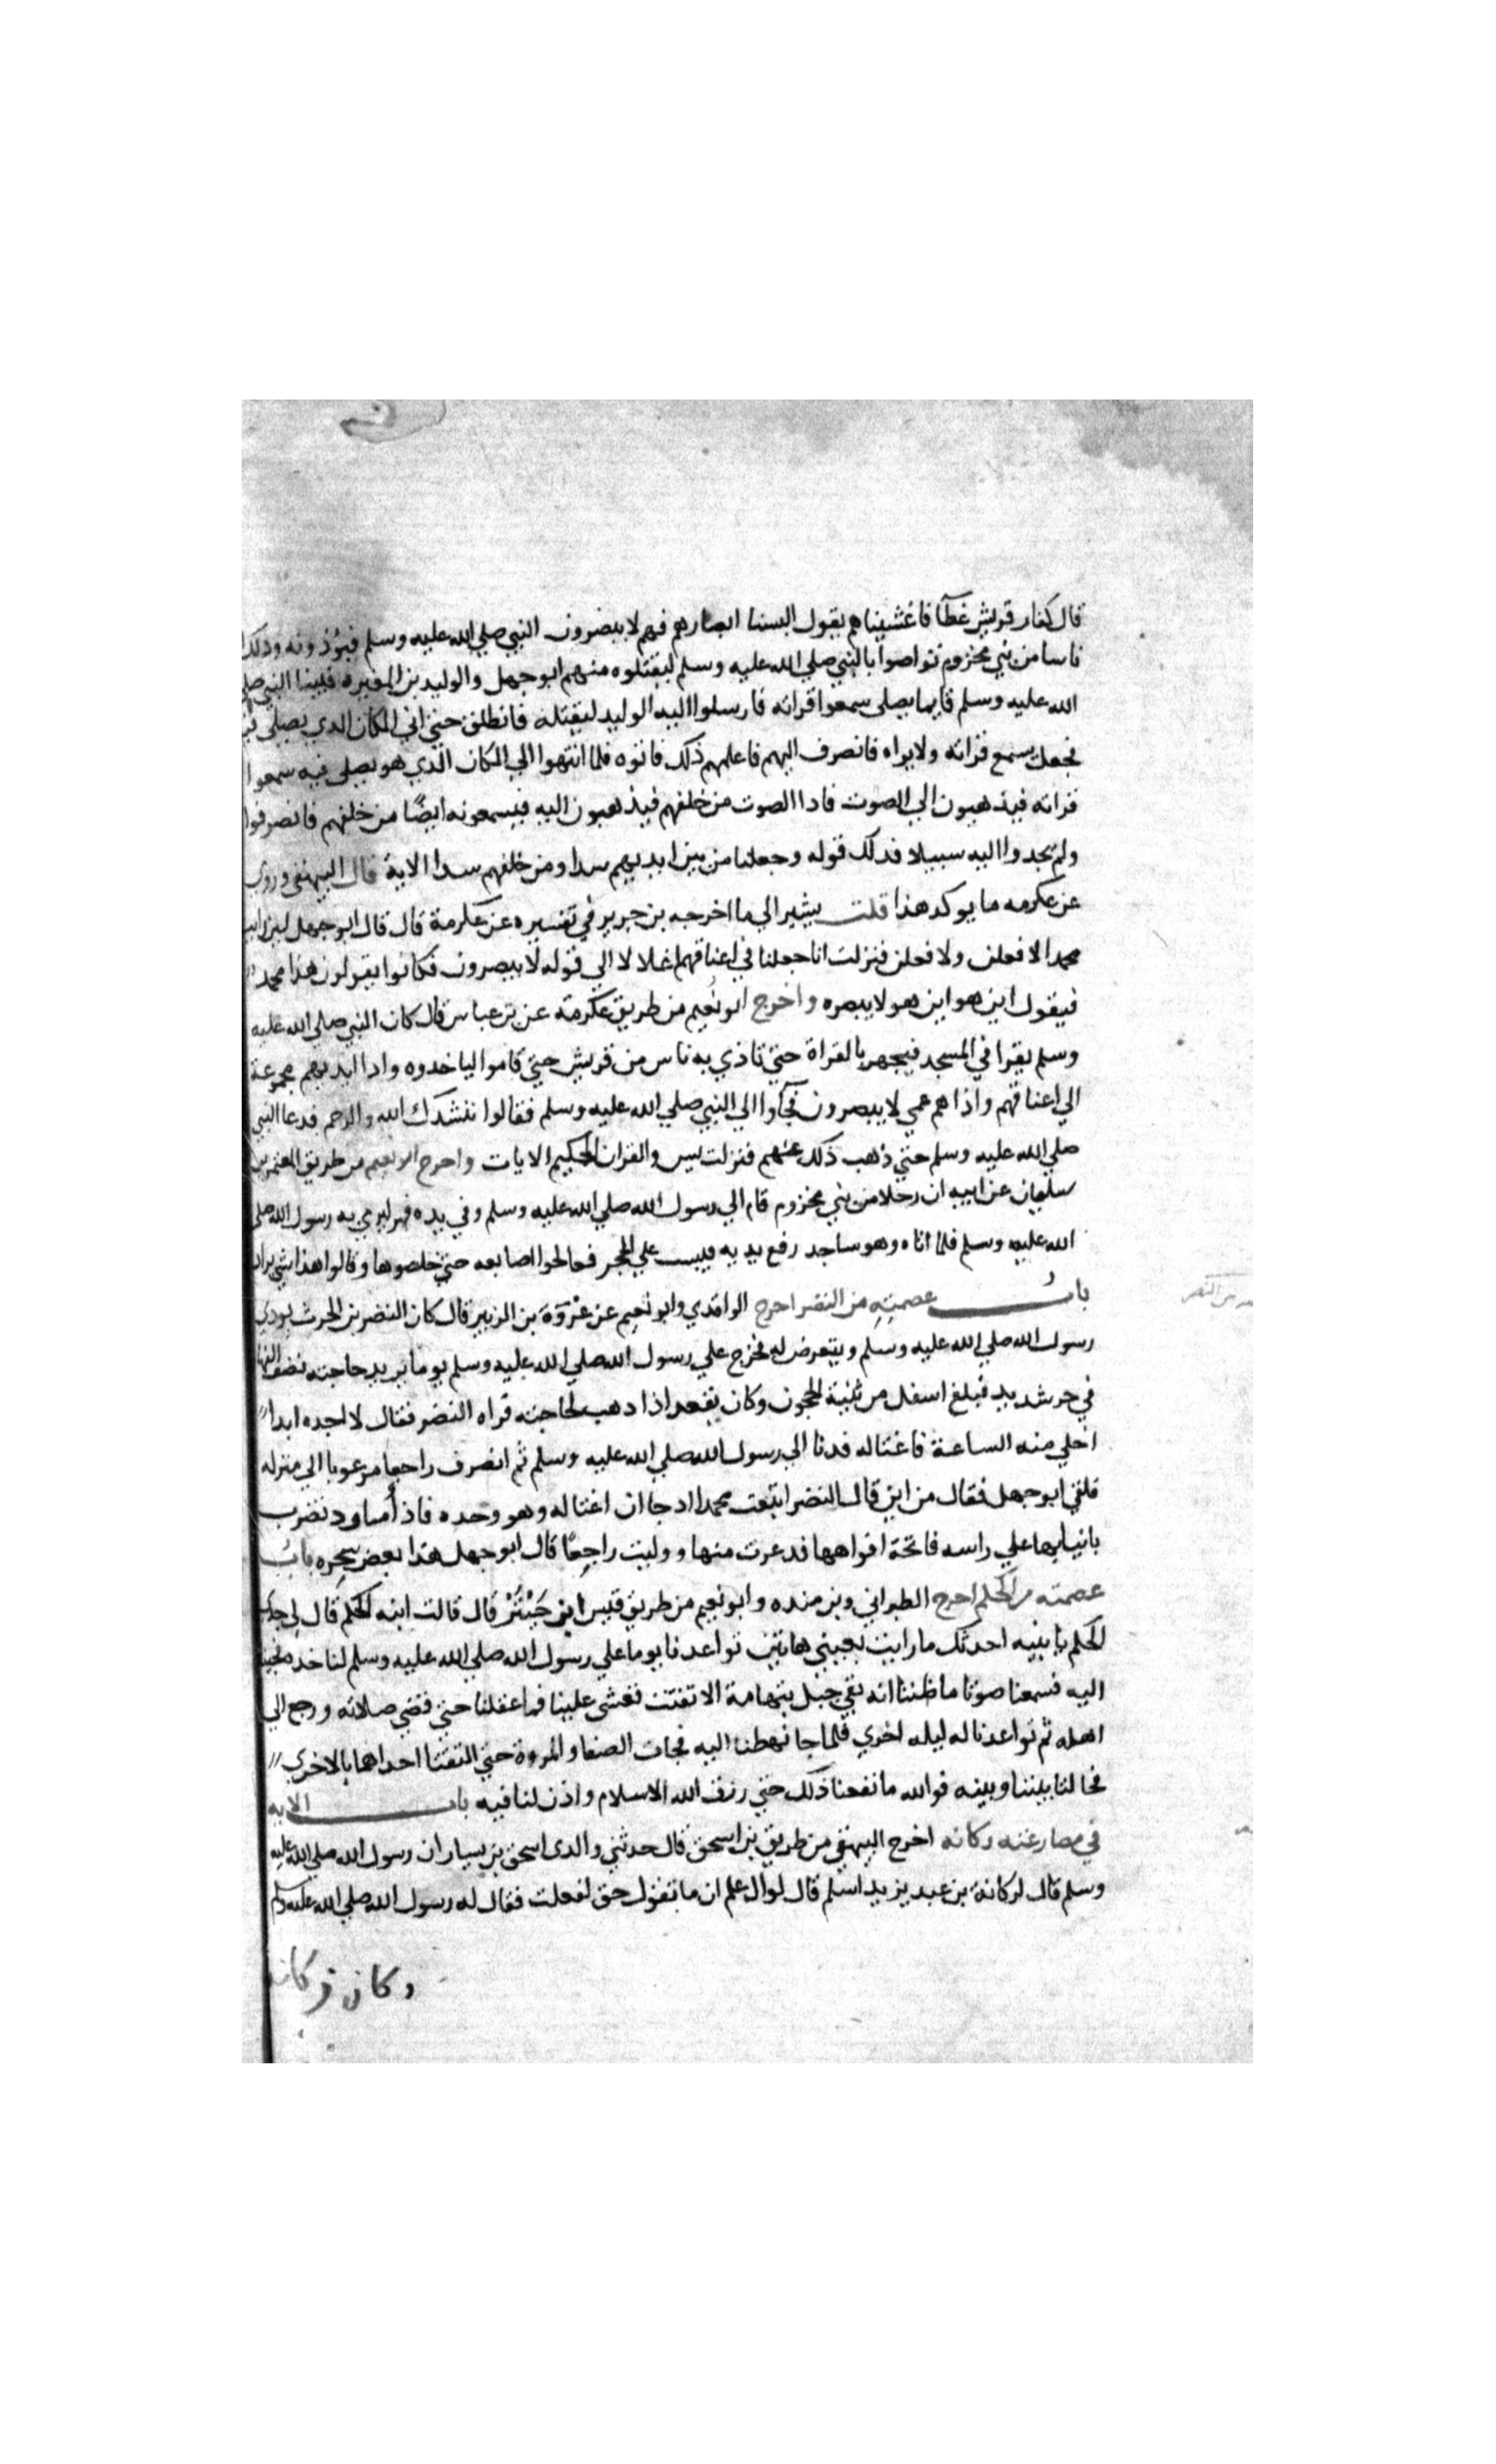 قال كفار قريش غطآ فاغشيناهم يقول البسنا ابصارهم فهم لا يبصرون النبي صلي الله عليه وسلم فيؤذونه وذلك
ناسا من بني مخزوم تواصوا بالنبي صلي الله عليه وسلم ليقتلوه منهم ابو جهل والوليد بن المغيره فبينا النبي صلي
الله عليه وسلم قايما يصلي سمعوا قراته فارسلوا اليه الوليد ليقتله فانطلق حتي اتي المكان الدي يصلي
فجعل يسمع قراته ولا يراه فانصرف اليهم فاعلمهم ذلك فاتوه فلما انتهوا الي المكان الذي هو يصلي فيه سمعوا
قراته فيذهبون الي الصوت فادا الصوت من خلفهم فيذهبون اليه فيسمعونه ايضًا من خلفهم فانصرفوا
ولم يجدوا اليه سبيلا فدلك قوله وجعلنا من بين ايديهم سدا ومن خلفهم سدا الاية قال البيهقي وروي
عن عكرمه ما يوكد هذا قلت يشير الي ما اخرجه بن جرير في تفسيره عن عكرمة قال قال ابو جهل لين رايت
محمدا لافعلن ولافعلن فنزلت انا جعلنا في اعناقهم اغلالا الي قوله لا يبصرون فكانوا يقولون هذا محمد
فيقول اين هو اين هو لا يبصره واخرج ابو نُعيم من طريق عكرمة عن بن عباس قال كان النبي صلي الله عليه
وسلم يقرا في المسجد فيجهر بالقراة حتي تاذي به ناس من قريش حتي قاموا لياخدوه وادا ايديهم مجموعة
الي اعناقهم واذا هم عمي لا يبصرون فجآوا الي النبي صلي الله عليه وسلم فقالوا ننشدك الله والرحم فدعا النبي
صلي الله عليه وسلم حتي ذهب ذلك عنهم فنزلت يس والقران الحكيم الايات واخرج ابو نعيم من طريق المعتمر بن
سليمان عن ابيه ان رجلا من بني مخزوم قام الي رسول الله صلي الله عليه وسلم وفي يده فهر ليرمي به رسول الله صلي
الله عليه وسلم فلما اتاه وهو ساجد رفع يديه فيبست علي الحجر فعالجوا اصابعه حتي خلصوها وقالوا هذا شي يراد
بابُ عصمتِهِ من النضر اخرج الواقدي وابو نعيم عن عُرْوَةَ بن الزبير قال كان النضر بن الحرث يودي
رسول الله صلي الله عليه وسلم ويتعرض له فخرج علي رسول الله صلي الله عليه وسلم يوما يريد حاجته نصف النهار
في حر شديد فبلغ اسفل من ثنية الحجون وكان يقعد اذا دهب لحاجته فراه النضر فقال لا اجده ابدا
اخلي منه الساعة فاغتاله فدنا الي رسول الله صلي الله عليه وسلم ثم انصرف راجعا مرعوبا الي منزله
فلقي ابو جهل فقال من اين قال النضر اتبعت محمدا ادجا ان اغتاله وهو وحده فاذ أساود تضرب
بانيابها علي راسه فاتحة افواهها فدعرت منها ووليت راجعًا قال ابو جهل هذا بعض سحره بابُ
عصمته من الحكم اخرج الطبراني وبن منده وابو نعيم من طريق قيس ابن حَبْتَرْ قال قالت ابنه الحكم قال لي جدي
الحكم يا بنيه احدثك ما رايت بعيني هاتين تواعدنا يوما علي رسول الله صلي الله عليه وسلم لناخده فجينا
اليه فسمعنا صوتا ما ظننا انه بقي جبل بتهامة الا تفتت فغشي علينا فما عقلنا حتي قضي صلاته ورجع الي
اهله ثم تواعدنا له ليله اخري فلما جا نهضنا اليه فجات الصفا والمروة حتي التقتا احداهما بالاخري
فحالتا بيننا وبينه فوالله ما نفعنا ذلك حتي رزق الله الاسلام واذن لنا فيه باب الايه
في مصارعته ركانه اخرج البيهقي من طريق بن اسحق قال حدثني والدي اسحق بن يسار ان رسول الله صلي الله عليه
وسلم قال لركانة بن عبد يزيد اسلم قال لو اعلم ان ما تقول حق لفعلت فقال له رسول الله صلي الله عليه وسلم
وكان ركانه